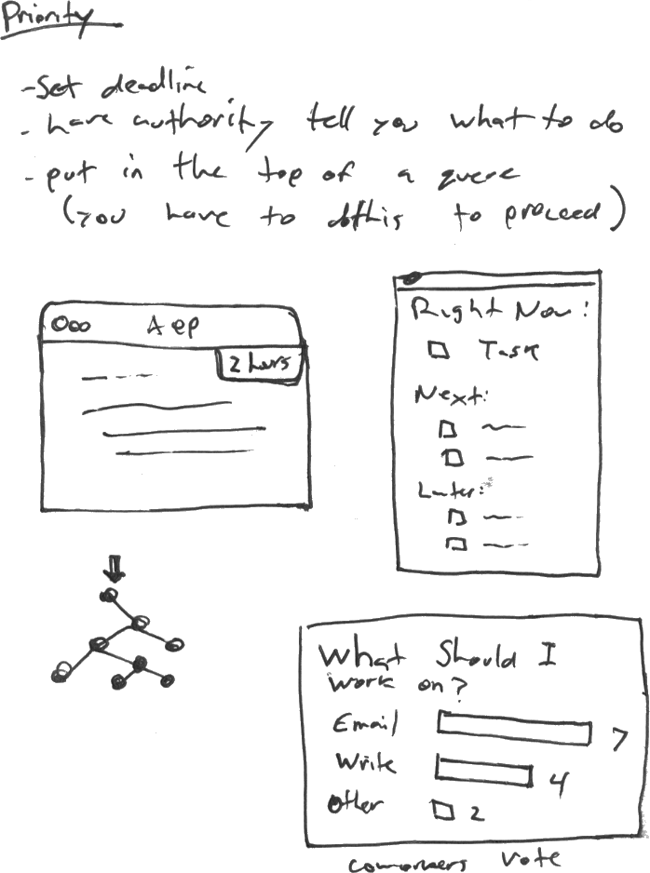 Priority
- Set deadline
- have authority tell you what to do
- put in the top of a queue
(you have to do this to proceed)
App
2 hours
Right Now:
Task
Next:
Later:
What Should I
work on?
Email 7
Write 4
Other 2
coworkers vote